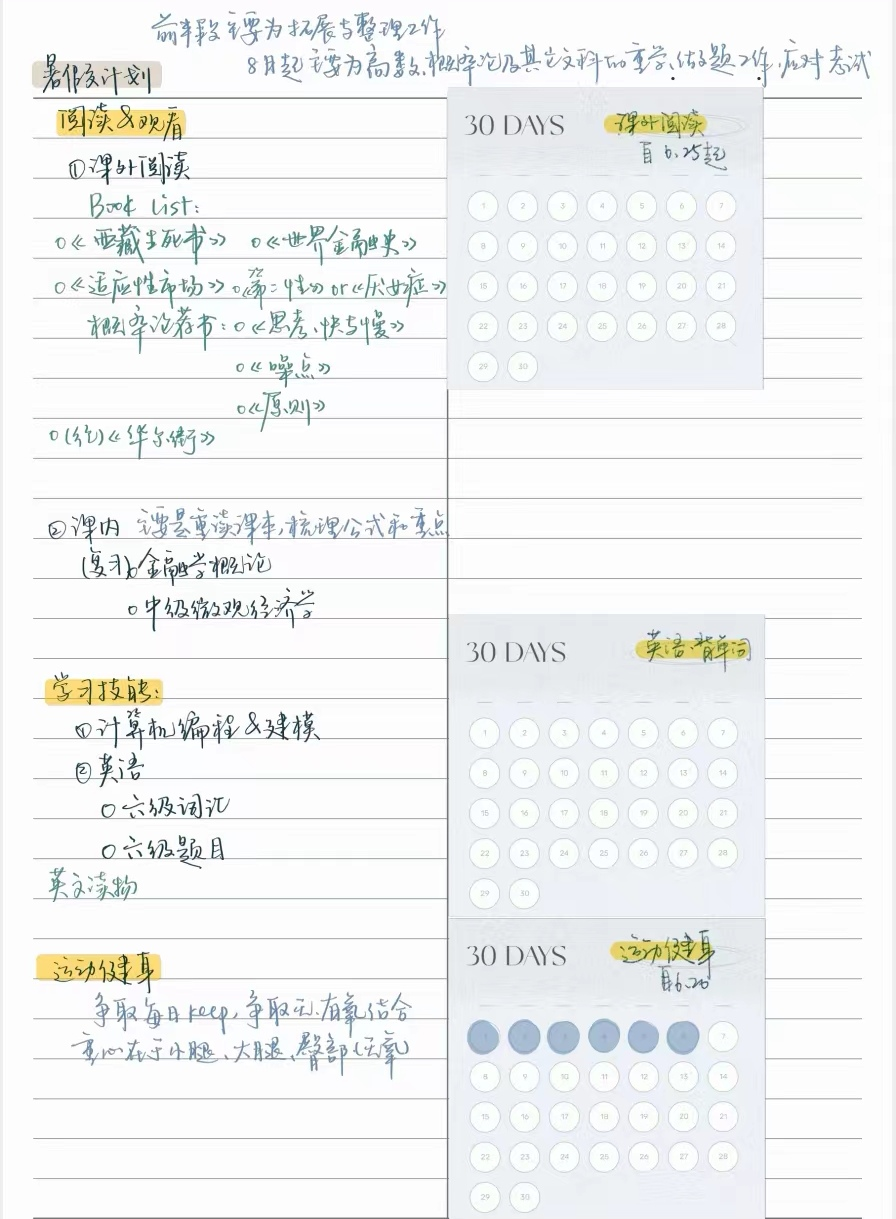 前半段主要为拓展与整理工作
8月起主要为高数、概率论及其它文科的重学、做题工作,应对考试
暑假计划
阅读&观看
①课外阅读
Book List:
○《西藏生死书》 ○《世界金融史》
○《适应性市场》 ○《第二性》or《厌女症》
概率论荐书:○《思考,快与慢》
○《噪点》
○《原则》
○(经)《华尔街》
②课内 主要是重读课本,梳理公式和重点
(复习)○金融学概论
○中级微观经济学
学习技能:
①计算机编程&建模
②英语
○六级词汇
○六级题目
英文读物
运动健身
争取每日keep,争取无、有氧结合
重心在于小腿、大腿、臀部(无氧)
30 DAYS 课外阅读
自6.25起
1 2 3 4 5 6 7
8 9 10 11 12 13 14
15 16 17 18 19 20 21
22 23 24 25 26 27 28
29 30
30 DAYS 英语、背单词
1 2 3 4 5 6 7
8 9 10 11 12 13 14
15 16 17 18 19 20 21
22 23 24 25 26 27 28
29 30
30 DAYS 运动健身
自6.20
7
8 9 10 11 12 13 14
15 16 17 18 19 20 21
22 23 24 25 26 27 28
29 30